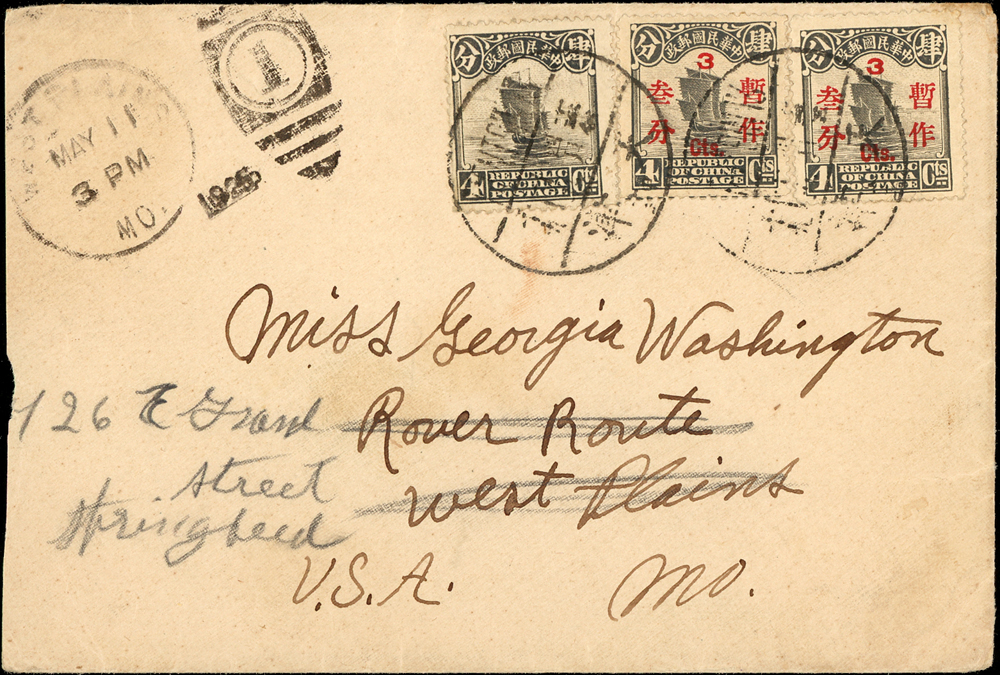 WEST PLAINS
MAY 11
3 PM
MO.
1
1926
分 政郵國民華中 肆
4 REPUBLIC OF CHINA POSTAGE Cts
分 政郵國民華中 肆
3
叁分 暫作
Cts.
4 REPUBLIC OF CHINA POSTAGE Cts
分 政郵國民華中 肆
3
叁分 暫作
Cts.
4 REPUBLIC OF CHINA POSTAGE Cts
Miss Georgia Washington
Rover Route
West Plains
U.S.A. Mo.
726 E Grand
Street